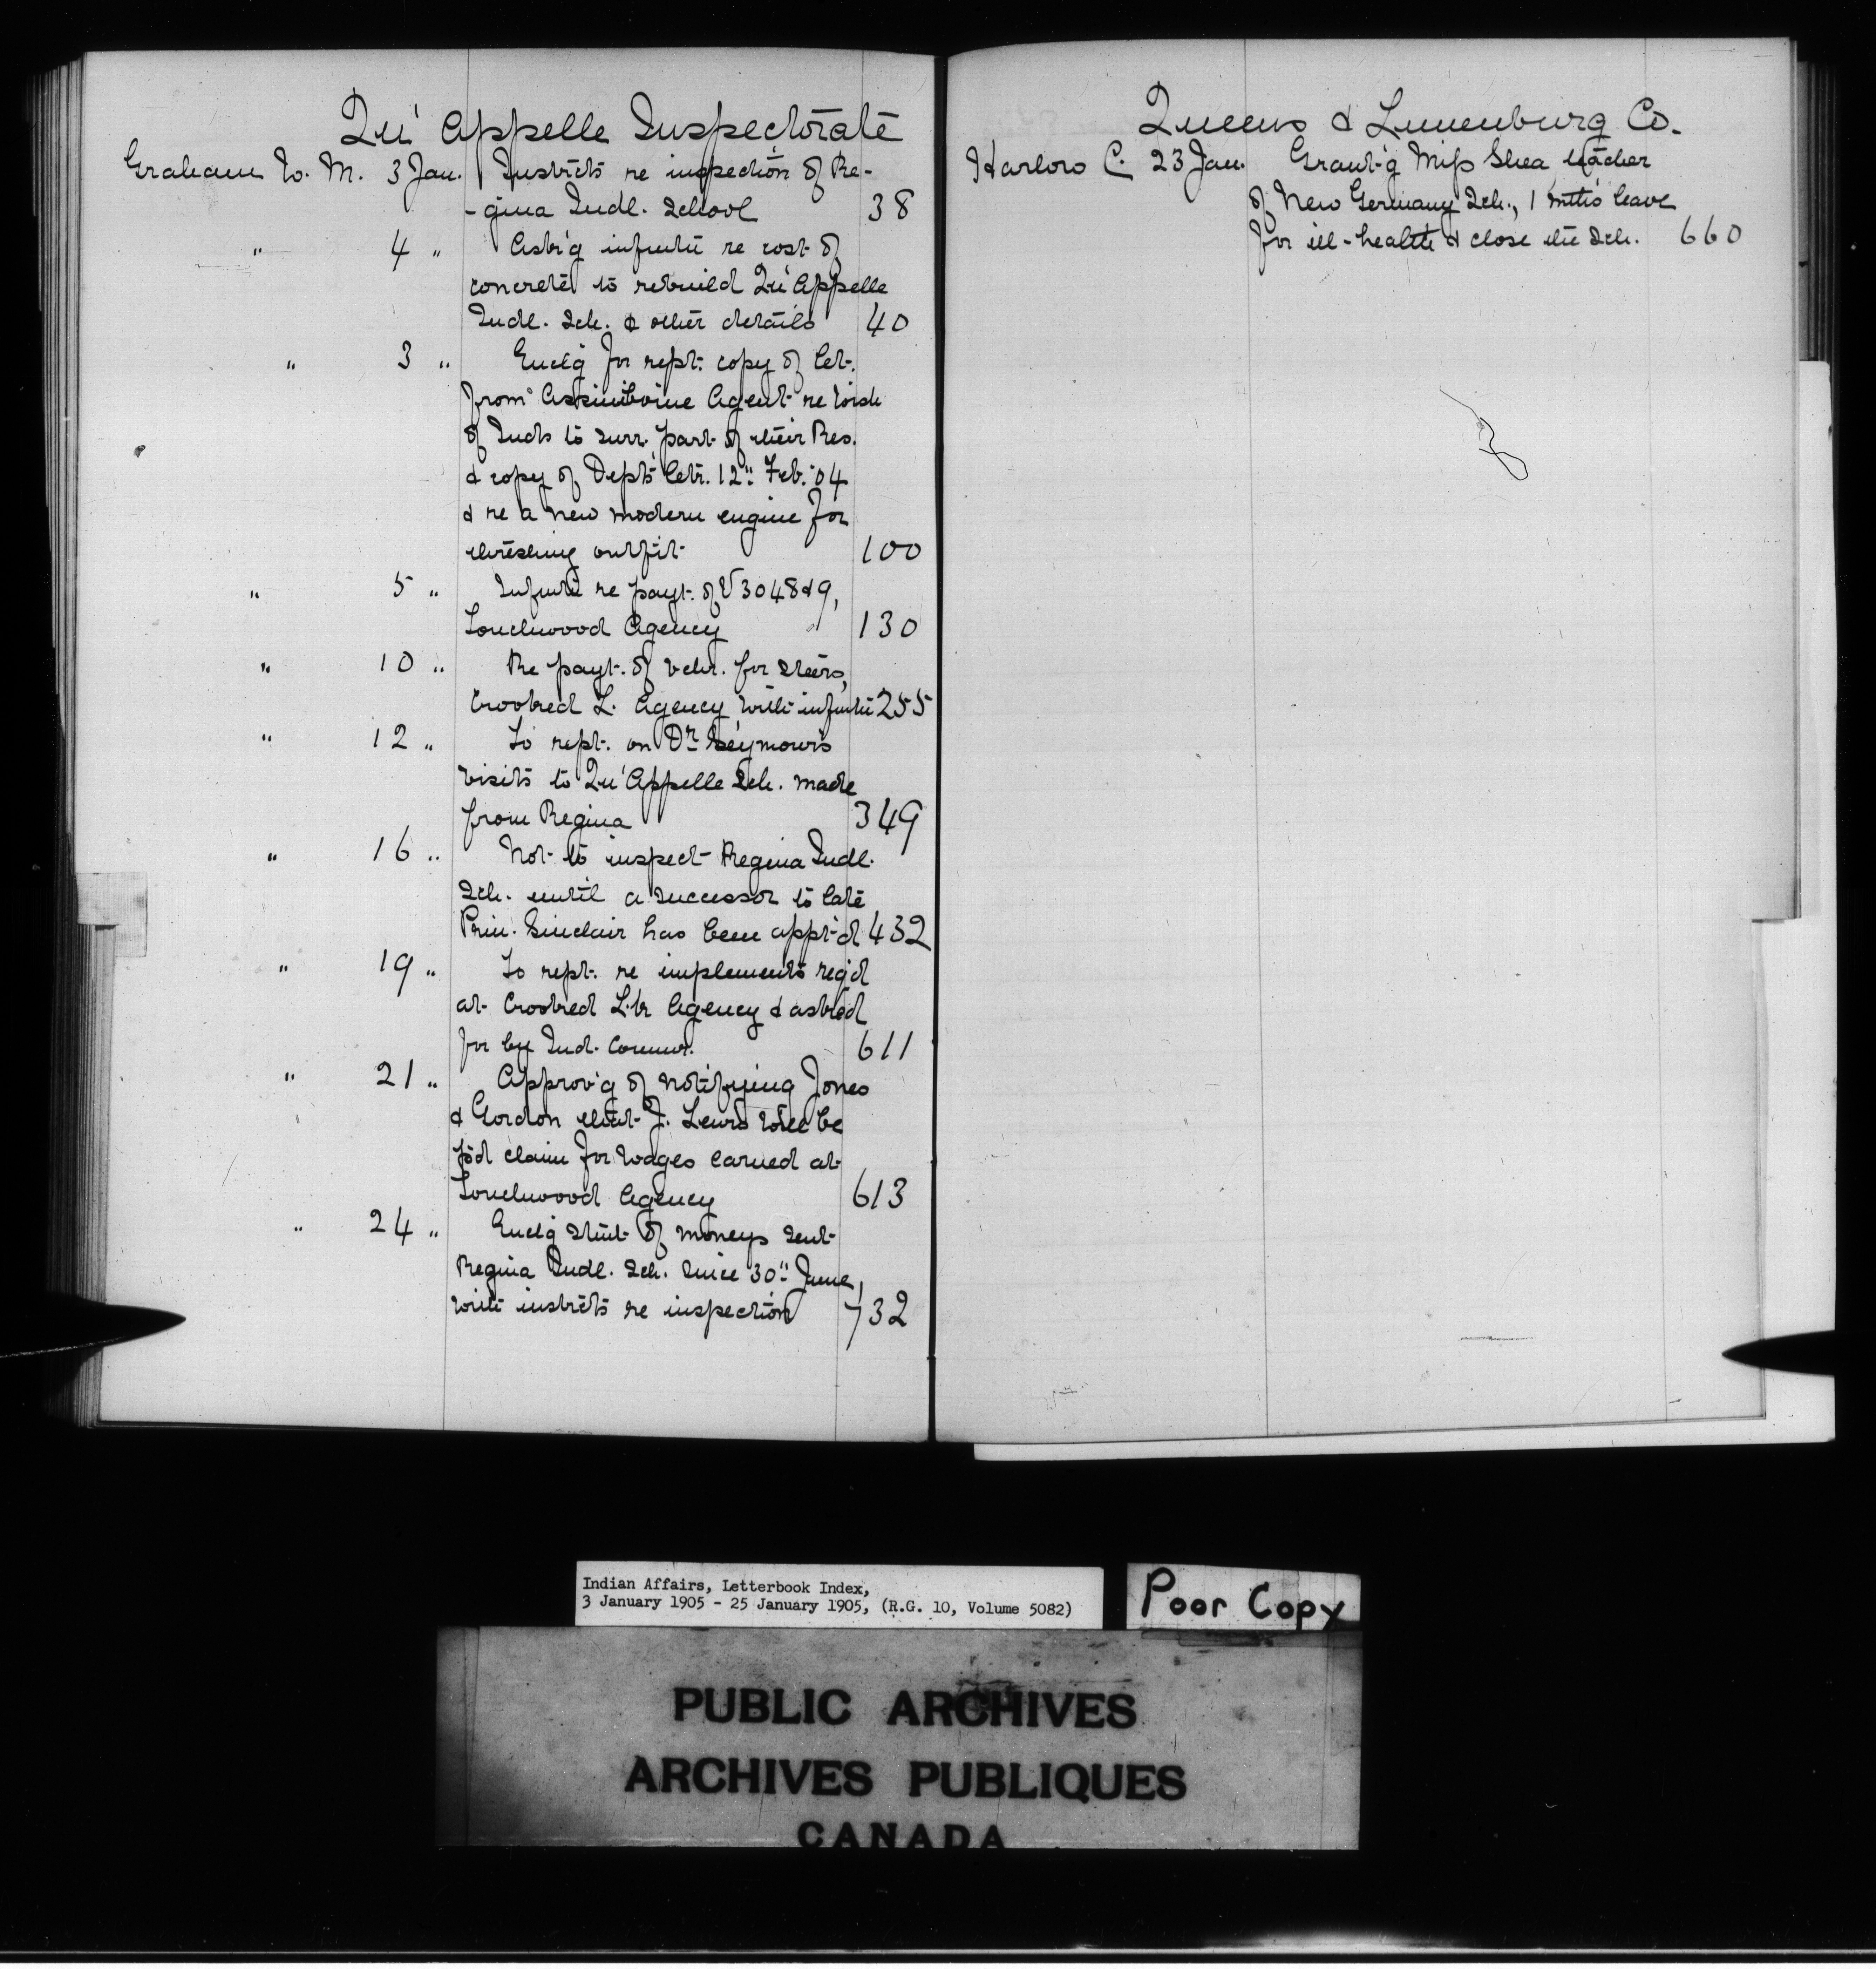 Qu'Appelle Inspectorate
Graham W. M. 3 Jan. Instrcts re inspection of Re-
-gina Indl. School 38
" 4 " Ask'g infmtn re cost of
concrete to rebuild Qu'Appelle
Indl. Sch. & other details 40
" 3 " Encl'g for rept. copy of let.
from Assiniboine Agent re wish
of Inds to surr. part of their Res.
& copy of Dept's letr. 12" Feb. '04
& re a new modern engine for
threshing outfit 100
" 5 " Infmtn re payt. of V 3048 & 9,
Touchwood Agency 130
" 10 " Re payt. of vchr. for steers,
Crooked L. Agency with infmtn 255
" 12 " To rept. on Dr. Seymour's
visits to Qu'Appelle Sch. made
from Regina 349
" 16 " Not to inspect Regina Indl.
Sch. until a successor to late
Prin. Sinclair has been appt'd 432
" 19 " To rept. re implements req'd
at Crooked L.k Agency & asked
for by Ind. Commr. 611
" 21 " Approv'g of notifying Jones
& Gordon that J. Lewis will be
p'd claim for wages earned at
Touchwood Agency 613
" 24 " Encl'g stmt of moneys sent
Regina Indl. Sch. since 30" June,
with instrcts re inspection 732
Queens & Lunenburg Co.
Harlow C. 23 Jan. Grant'g Miss Shea teacher
of New Germany Sch., 1 mth's leave
for ill-health & close the Sch. 660
Indian Affairs, Letterbook Index,
3 January 1905 - 25 January 1905, (R.G. 10, Volume 5082)
Poor Copy
PUBLIC ARCHIVES
ARCHIVES PUBLIQUES
CANADA